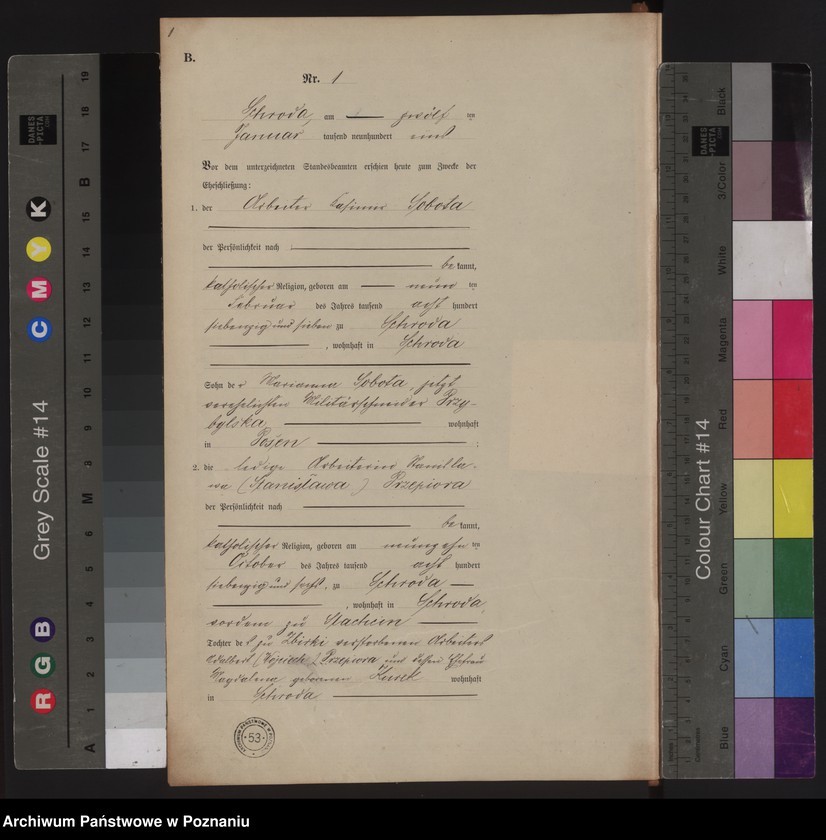 1
B.
Nr. 1
Schroda, am zwölf ten
Januar tausend neunhundert eins
Vor dem unterzeichneten Standesbeamten erschien heute zum Zwecke der
Eheschließung:
1. der Arbeiter Casimir Sobota
der Persönlichkeit nach
be kannt,
katholischer Religion, geboren am neun ten
Februar des Jahres tausend acht hundert
siebenzig und sieben zu Schroda
, wohnhaft in Schroda
Sohn de r Marianna Sobota, jetzt
verehelichten Militärschneider Przy-
bylska, wohnhaft
in Posen ;
2. die ledige Arbeiterin Stanisla-
wa (Stanisława) Przepiora
der Persönlichkeit nach
be kannt,
katholischer Religion, geboren am neunzehn ten
October des Jahres tausend acht hundert
siebenzig und sechs, zu Schroda
, wohnhaft in Schroda,
vordem zu
Tochter de s zu Zbirki verstorbenen Arbeiters
Adalbert (Wojciech) Przepiora und dessen Ehefrau
Magdalena geborenen Zurek wohnhaft
in Schroda
ARCHIWUM PAŃSTWOWE W POZNANIU
53
Grey Scale #14
DANES
PICTA
.COM
C M Y K
R G B
A 1 2 3 4 5 6 M 8 9 10 11 12 13 14 15 B 17 18 19
Colour Chart #14
DANES
PICTA
.COM
Black
3/Color
White
Magenta
Red
Yellow
Green
Cyan
Blue
Archiwum Państwowe w Poznaniu